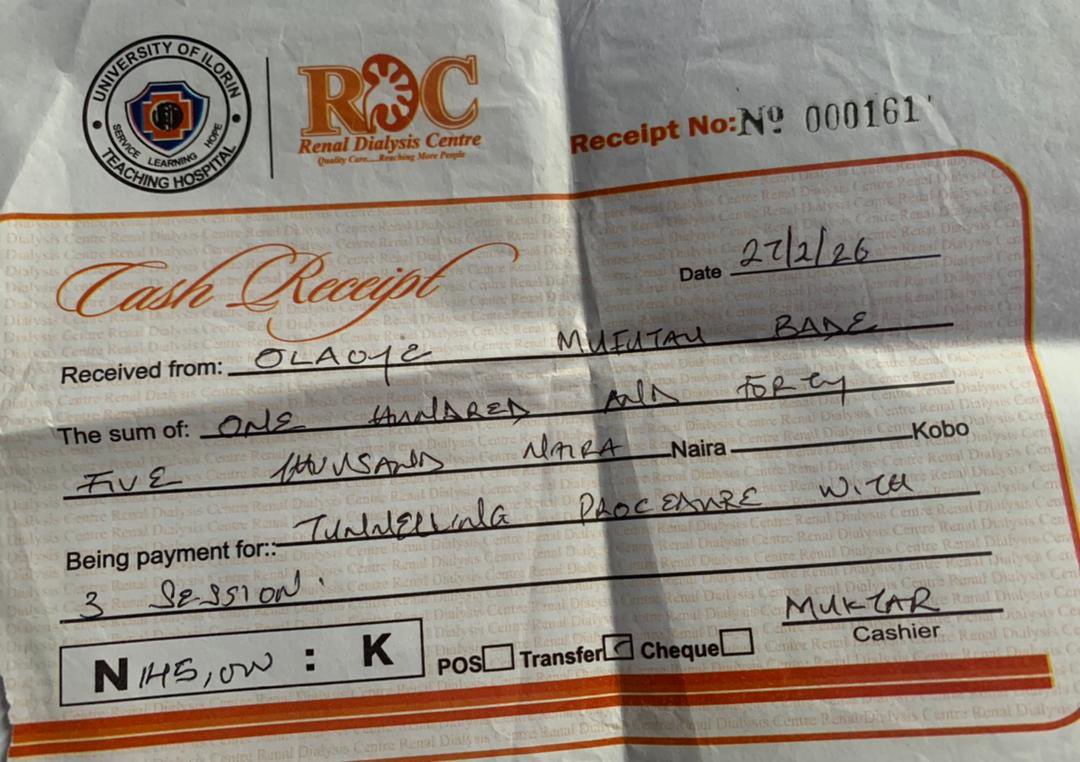 UNIVERSITY OF ILORIN
TEACHING HOSPITAL
SERVICE LEARNING HOPE
RDC
Renal Dialysis Centre
Quality Care....Reaching More People
Receipt No: Nº 000161
Cash Receipt
Date 27/2/26
Received from: OLAOYE MUFUTAU BADE
The sum of: ONE HUNDRED AND FORTY
FIVE THOUSAND NAIRA Naira Kobo
Being payment for:: TUNNELLING PROCEDURE WITH
3 SESSION.
MUKTAR
Cashier
N 145,000 : K POS Transfer Cheque